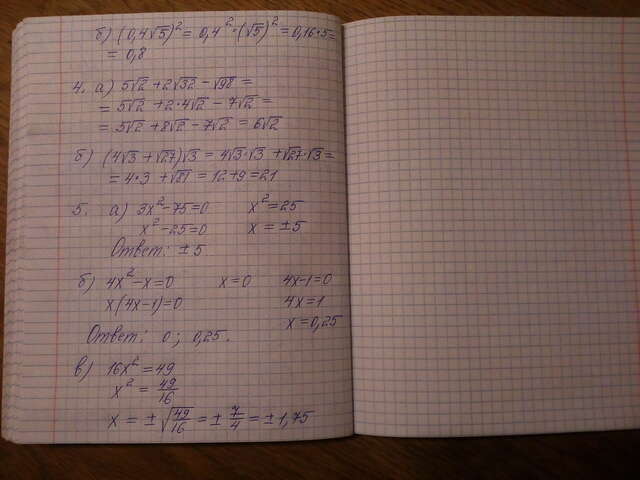 б) (0,4√5)² = 0,4²·(√5)² = 0,16·5=
= 0,8
4. а) 5√2 + 2√32 - √98 =
= 5√2 + 2·4√2 - 7√2 =
= 5√2 + 8√2 - 7√2 = 6√2
б) (4√3 + √27)√3 = 4√3·√3 + √27·√3 =
= 4·3 + √81 = 12+9 = 21
5. а) 3x² - 75 = 0 x² = 25
x² - 25 = 0 x = ±5
Ответ: ±5
б) 4x² - x = 0 x = 0 4x-1=0
x(4x-1)=0 4x=1
x=0,25
Ответ: 0; 0,25.
в) 16x² = 49
x² = 49/16
x = ±√49/16 = ± 7/4 = ±1,75